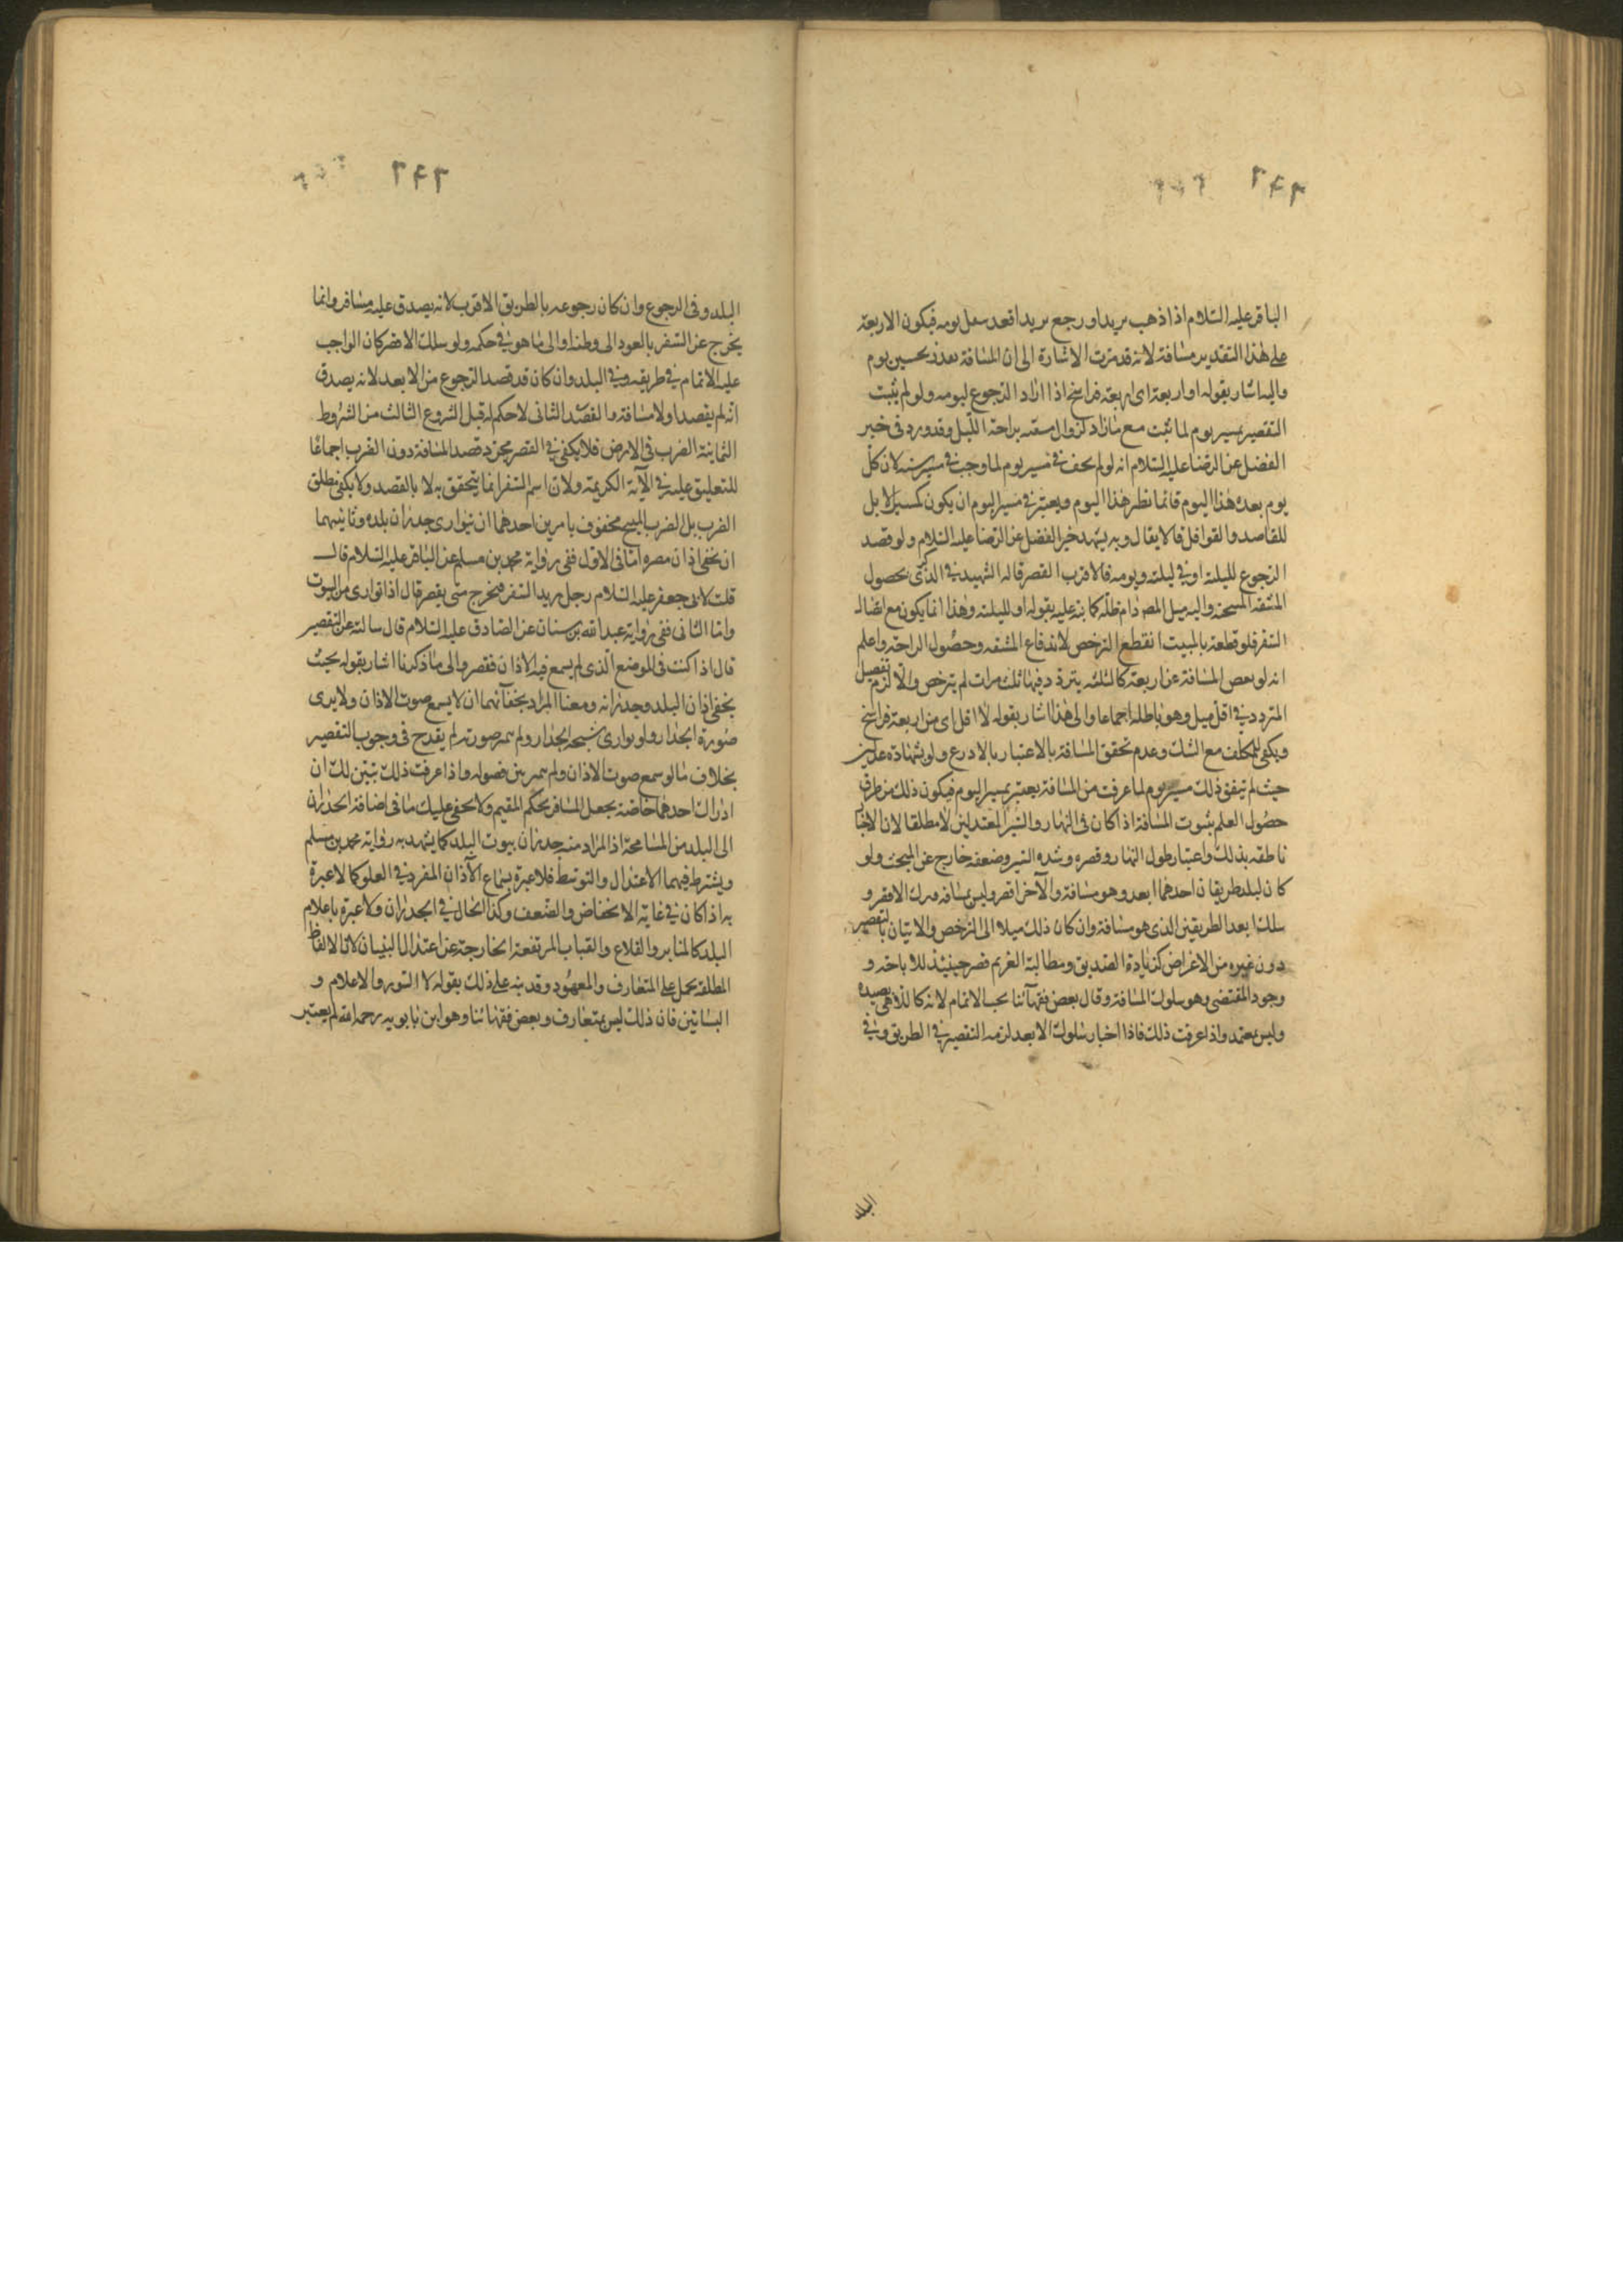 ٢٤٩
الباقر عليه السّلام اذا ذهب بريدا ورجع بريدا فعد سعل يومه فيكون الاربعة
على هذا التقدير مسافة لانه قد مرّت الاشارة الى ان المسافة بحسب يوم
واليه اشار بقوله او اربعة اى اربعة فراسخ اذا اراد الرجوع ليومه ولو لم يثبت
التقصير بمسير يوم لما ثبت مع مازاد لزوال مشقته براحة الليل وقد ورد فى خبر
الفضل عن الرضا عليه السّلام انه لو لم يجب فى مسير يوم لما وجب فى مسير سنة لان كل
يوم بعد هذا اليوم فانما نظير هذا اليوم ويعتبر فى مسير اليوم ان يكون كمسير الابل
للقاصد والقوافل فالايقال وبه يشهد خبر الفضل عن الرضا عليه السّلام ولو قصد
الرجوع لليلته او فى ليلته ويومه فالاقرب القصر قاله الشهيد فى الذكرى لحصول
المشقة المبيحة واليه ميل المص دام ظله كما نبه عليه بقوله او لليلته وهذا انما يكون مع اتصال
السفر فلو قطعه بالمبيت انقطع الترخص لاندفاع المشقه وحصول الراحة واعلم
انه لو نقص المسافة عن اربعة كالثلثه يتردّد فيها ثلث مرات لم يترخص والّا لزم تفصيل
المتردد فى اقل ميل وهو باطل اجماعا والى هذا اشار بقوله لا اقل اى من اربعة فراسخ
ويكفى للمكلف مع الشك وعدم تحقق المسافة بالاعتبار بالاذرع ولو بشهادة عدلين
حيث لم يتفق ذلك مسير يوم لما عرفت من المسافة يعتبر بمسير اليوم فيكون ذلك من طرق
حصول العلم بثبوت المسافة اذا كان فى النهار والسير المعتدلين لا مطلقا لان الاخبار
ناطقه بذلك واعتبار طول النهار وقصره وشده السير وضعفه خارج عن المبحث ولو
كان لبلد طريقان احدهما ابعد وهو مسافة والآخر اقصر وليس بمسافه فترك الاقصر و
سلك ابعد الطريقين الذى هو مسافة وان كان ذلك ميلا الى الترخص والاتيان بالتقصير
دون غيره من الاغراض كزيادة الصديق ومطالبة الغريم قصر حينئذ للاباحة و
وجود المقتضى وهو سلوك المسافة وقال بعض فقهآئنا يجب الاتمام لانه كاللاهى بصيده
وليس بمعتمد واذا عرفت ذلك فاذا اختار سلوك الابعد لزمه التقصير فى الطريق وفى
البلد
٢٤٢
البلد وفى الرجوع وان كان رجوعه بالطريق الاقرب لانه يصدق عليه مسافر وانما
يخرج عن السفر بالعود الى وطنه او الى ما هو فى حكمه ولو سلك الاقصر كان الواجب
عليه الاتمام فى طريقه وفى البلد وان كان قد قصد الرجوع من الابعد لانه يصدق
انه لم يقصد اولا مسافة والقصد الثانى لا حكم له قبل الشروع الثالث من الشروط
الثمانية الضرب فى الارض فلا يكفى فى القصر مجرّد قصد المسافة دون الضرب اجماعًا
للتعليق عليه فى الآية الكريمة ولان اسم السفر انما يتحقق به لا بالقصد ولا يكفى مطلق
الضرب بل الضرب المبيح محفوف بامرين احدهما ان يتوارى جدران بلده وثانيهما
ان يخفى اذان مصره امّا فى الاول ففى رواية محمد بن مسلم عن الباقر عليه السّلام قال
قلت لابى جعفر عليه السّلام رجل يريد السّفر فيخرج متى يقصر قال اذا توارى من البيوت
وامّا الثانى ففى رواية عبد الله بن سنان عن الصادق عليه السّلام قال سالته عن التقصير
قال اذا كنت فى الموضع الّذى لم يسمع فيه الاذان فقصر والى ما ذكرنا اشار بقوله بحيث
يخفى اذان البلد وجدرانه ومعنا المراد بخفآئهما ان لا يسمع صوت الاذان ولا يرى
صورة الجدار ولو توارى شبحه الجدار ولم يتميز صورته لم يقدح فى وجوب التقصير
بخلاف ما لو سمع صوت الاذان ولم يتميز بين فصوله واذا عرفت ذلك تبيّن لك ان
ادراك احدهما خاصّة يجعل المسافر بحكم المقيم ولا يخفى عليك ما فى اضافة الجدران
الى البلد من المسامحة اذ المراد منه جدران بيوت البلد كما يشهد به رواية محمد بن مسلم
ويشترط فيهما الاعتدال والتوسّط فلا عبرة بسماع الآذان المفرد فى العلو كما لا عبرة
به اذا كان فى غاية الانخفاض والضّعف وكذا الحال فى الجدران ولا عبرة باعلام
البلد كالمنابر والقلاع والقباب المرتفعة الخارجة عن اعتدال البنيان لان الالفاظ
المطلقه يحمل على المتعارف والمعهود وقد نبه على ذلك بقوله لا السور والاعلام و
البساتين فان ذلك ليس بمتعارف وبعض فقهائنا وهو ابن بابويه رحمه الله لم يعتبر